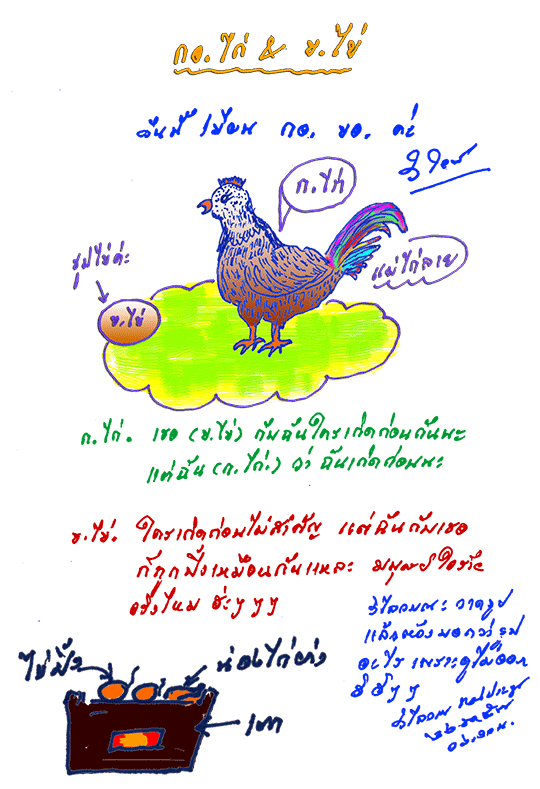 กอ.ไก่ & ข.ไข่
วันนี้ เขียน กอ. ขอ. ค่ะ
ก.ไก่
แม่ไก่ลาย
รูปไข่ค่ะ
ข.ไข่
ก.ไก่. เธอ (ข.ไข่) กับฉันใครเกิดก่อนกันนะ
แต่ฉัน (ก.ไก่.) ว่า ฉันเกิดก่อนนะ
ข.ไข่. ใครเกิดก่อนไม่สำคัญ แต่ฉันกับเธอ
ก็ถูกปิ้งเหมือนกันแหละ มนุษย์ใจร้าย
จริงไหม ฮะๆๆๆ
ไข่ปิ้ง
น่องไก่ย่าง
เตา
วิไลวรรณะ วาดรูป
แล้วต้องบอกว่ารูป
อะไร เพราะดูไม่ออก
ฮิ ฮิๆๆ
วิไลวรรณ